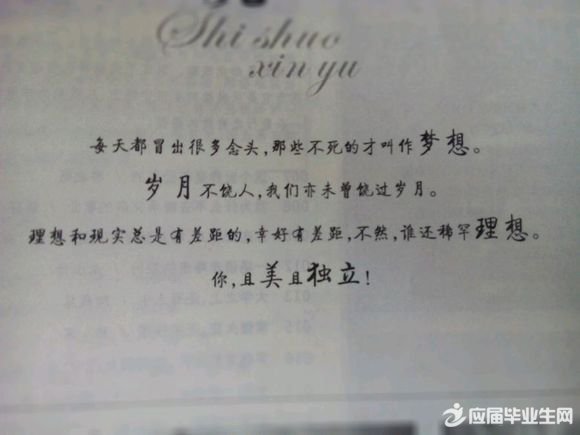 Shi shuo
xin yu
每天都冒出很多念头,那些不死的才叫作梦想。
岁月不饶人,我们亦未曾饶过岁月。
理想和现实总是有差距的,幸好有差距,不然,谁还稀罕理想。
你,且美且独立!
应届毕业生网